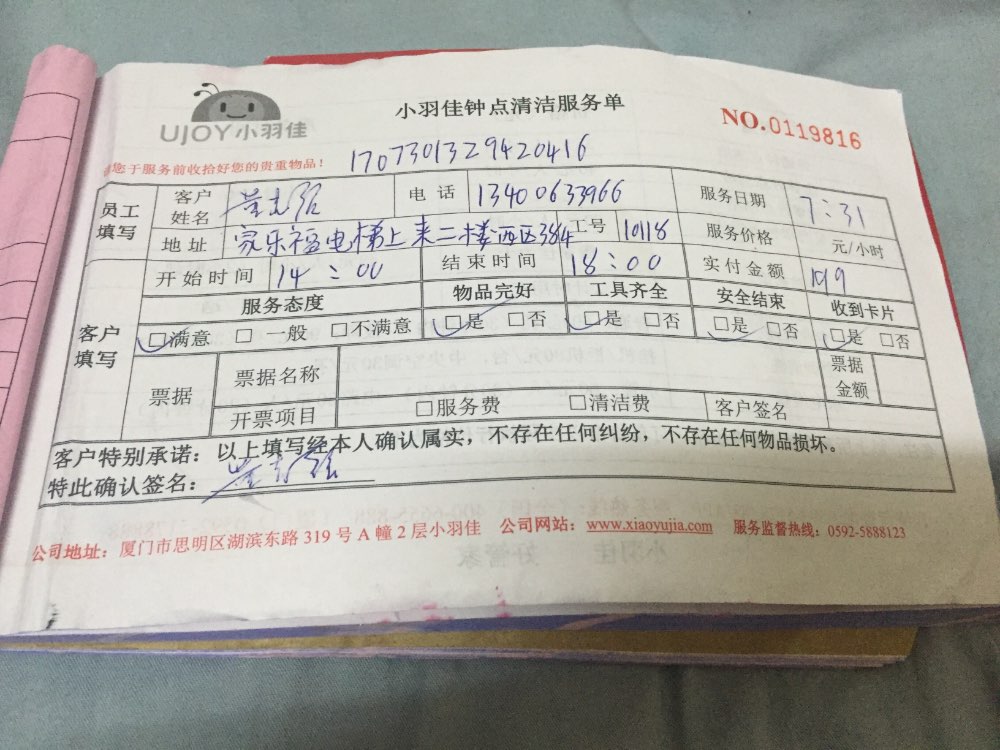 UJOY小羽佳
小羽佳钟点清洁服务单
NO.0119816
您于服务前收拾好您的贵重物品！
1707301329420416
员工填写 客户姓名 电话 13400633966 服务日期 7:31
地址 家乐福电梯上来二楼西区384 工号 10118 服务价格 元/小时
客户填写 开始时间 14:00 结束时间 18:00 实付金额 109
服务态度 物品完好 工具齐全 安全结束 收到卡片
□满意 □一般 □不满意 □是 □否 □是 □否 □是 □否 □是 □否
票据 票据名称 票据金额
开票项目 □服务费 □清洁费 客户签名
客户特别承诺：以上填写经本人确认属实，不存在任何纠纷，不存在任何物品损坏。
特此确认签名：
公司地址：厦门市思明区湖滨东路 319 号 A 幢 2 层小羽佳 公司网站：www.xiaoyujia.com 服务监督热线：0592-5888123